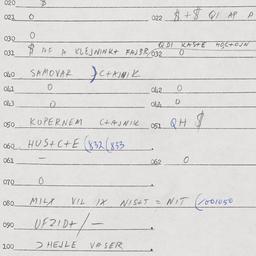 020 $
021 0
022 $ + $ QI AP A
030 0
031 $ DE A KLEJNINK+ FAJBR/032 0
040 SAMOVAR ) C+AJNIK
041 0 042 0
043 0 044 0
050 KUPERNEM C+AJNIK 051 QH $
060 HUS+C+E (832 (833
061 - 062 0
070 0
080 MILX VIL IX NIS+T = NIT (/001050
090 UFZID+/-
100 HEJLE VASER